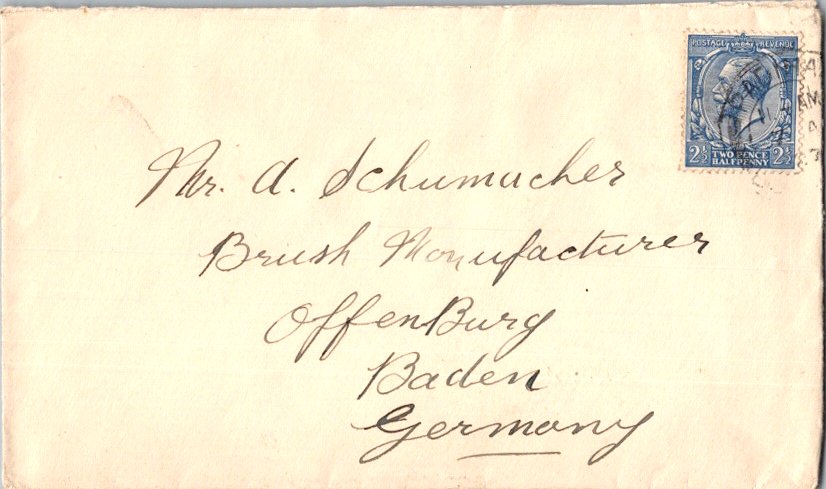 POSTAGE REVENUE
2½ TWO PENCE HALFPENNY 2½
AM
Mr. A. Schumacher
Brush Manufacturer
OffenBurg
Baden
Germany